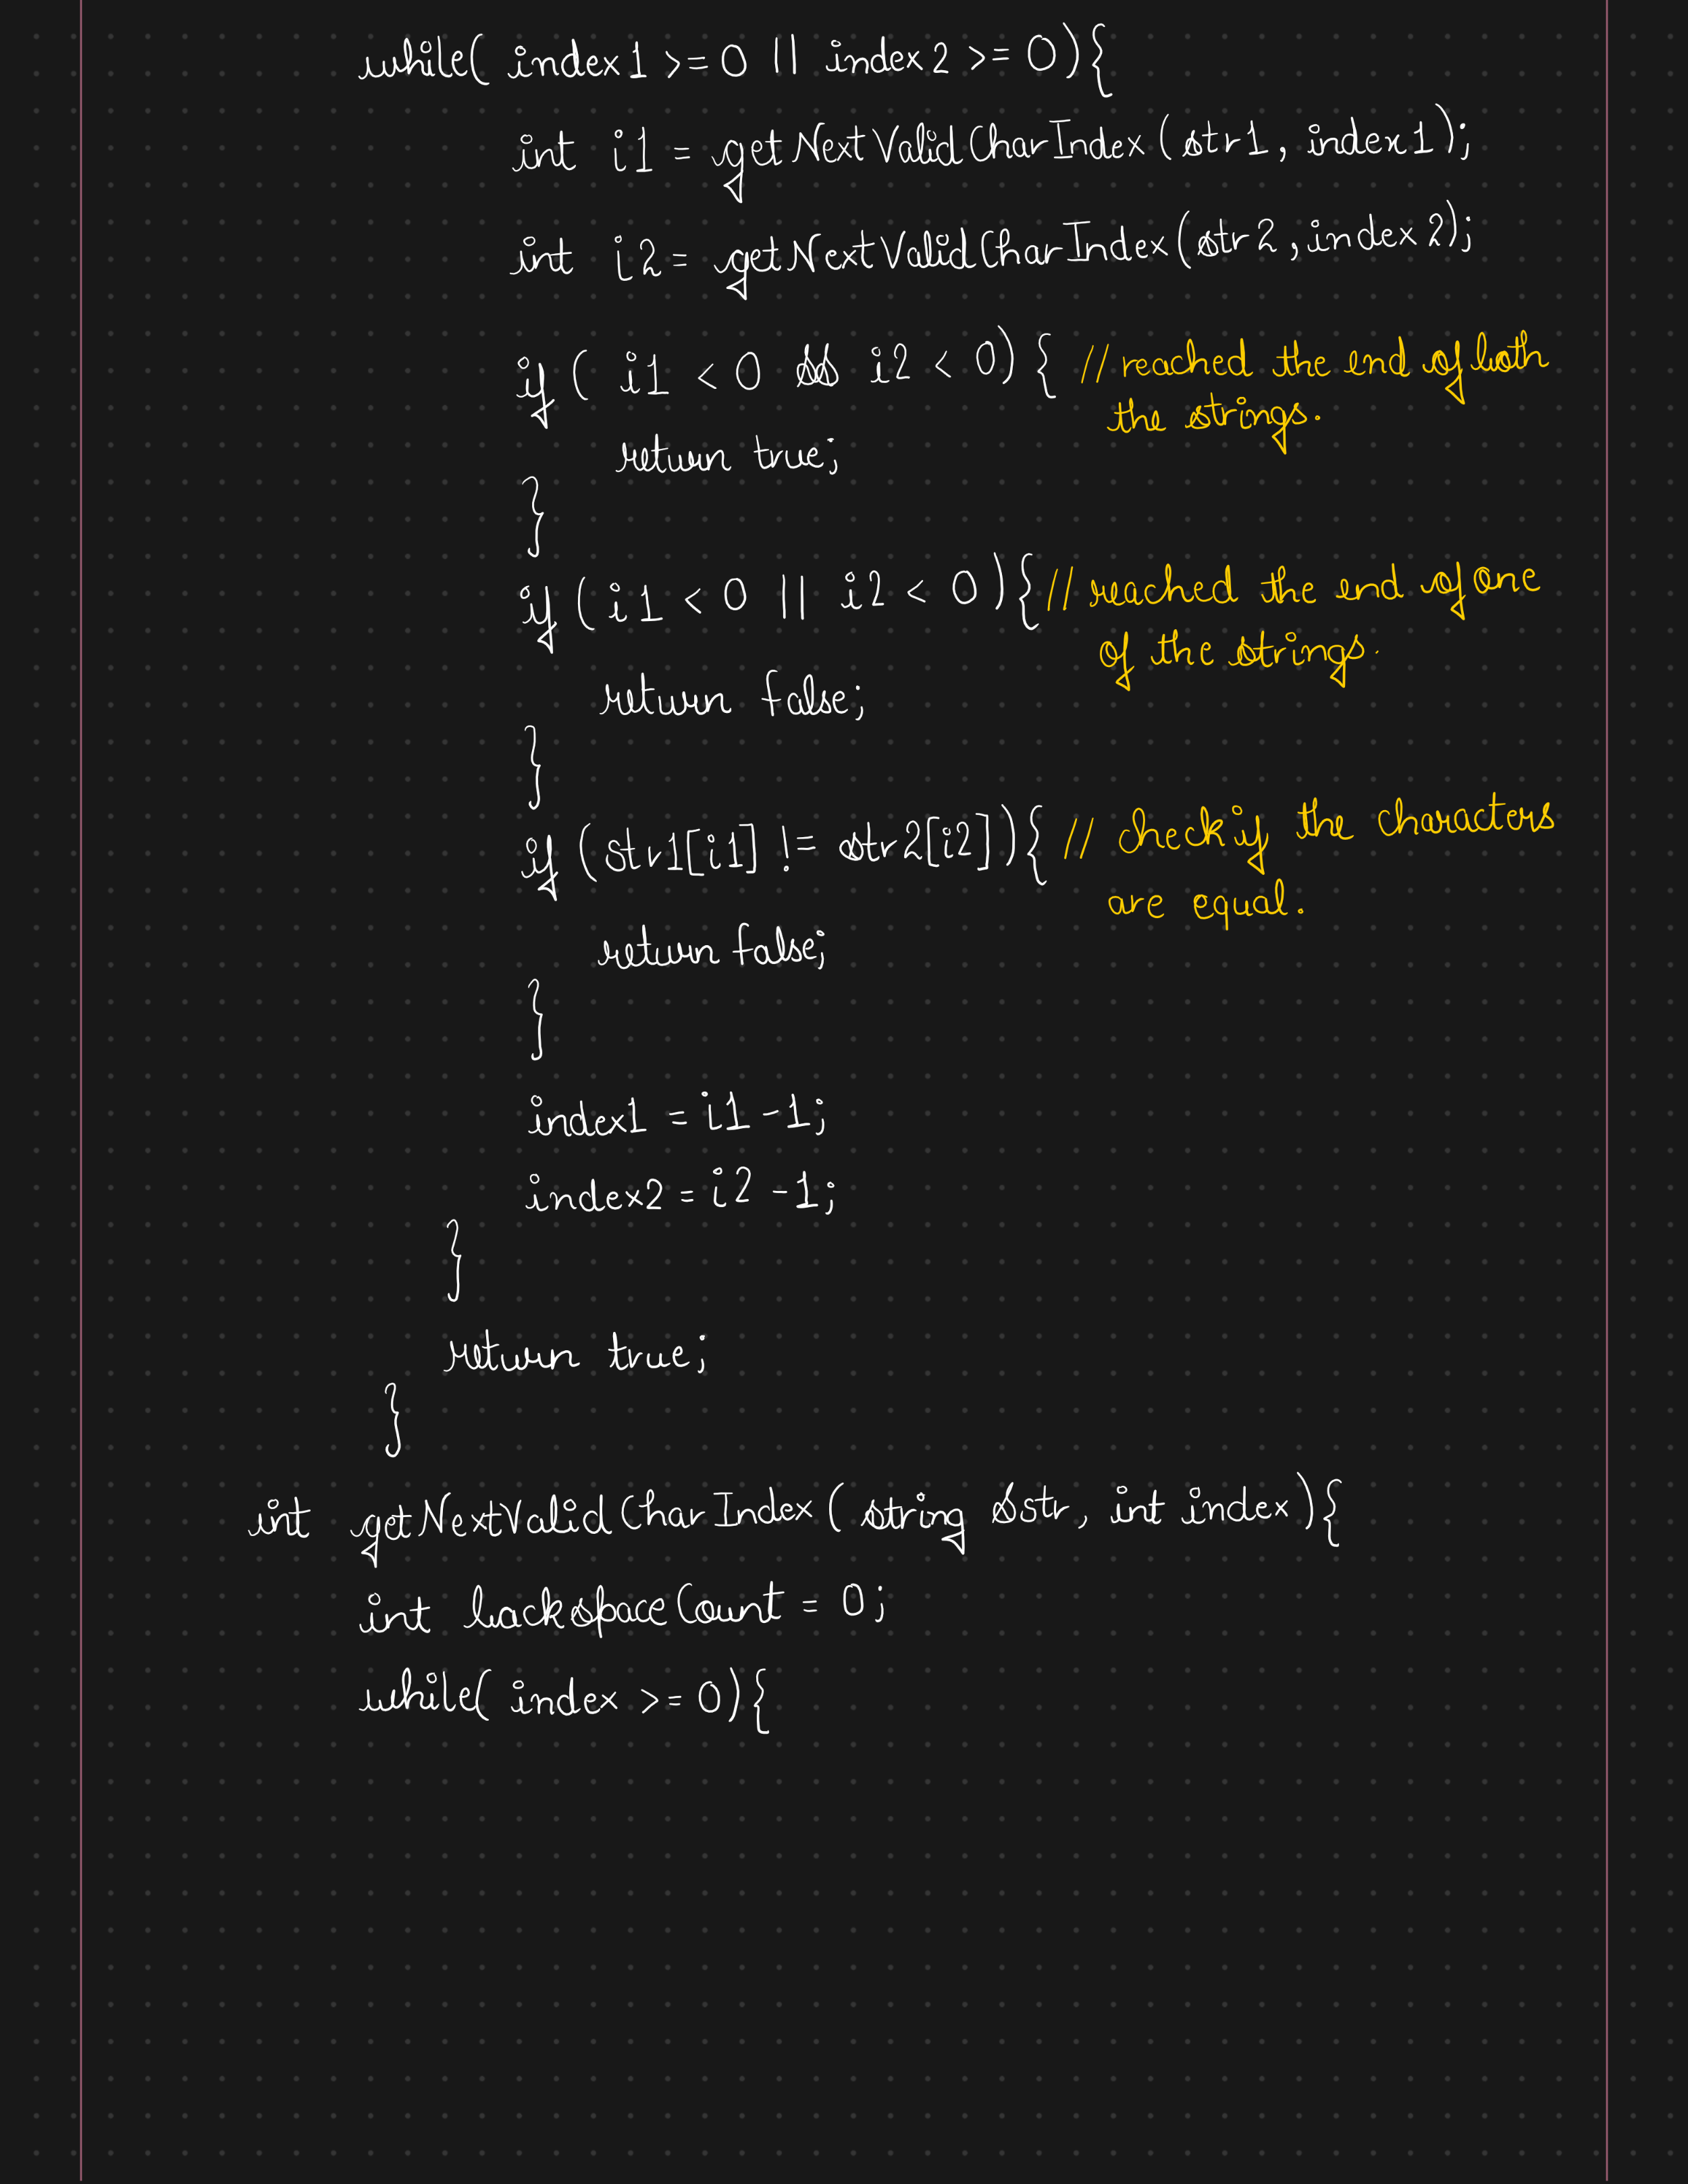 while( index1 >= 0 || index2 >= 0){
int i1 = getNextValidCharIndex(str1, index1);
int i2 = getNextValidCharIndex(str2, index2);
if( i1 < 0 && i2 < 0){ // reached the end of both
the strings.
return true;
}
if(i1 < 0 || i2 < 0){ // reached the end of one
of the strings.
return false;
}
if(str1[i1] != str2[i2]){ // check if the characters
are equal.
return false;
}
index1 = i1 - 1;
index2 = i2 - 1;
}
return true;
}
int getNextValidCharIndex( string &str, int index){
int backspaceCount = 0;
while( index >= 0){